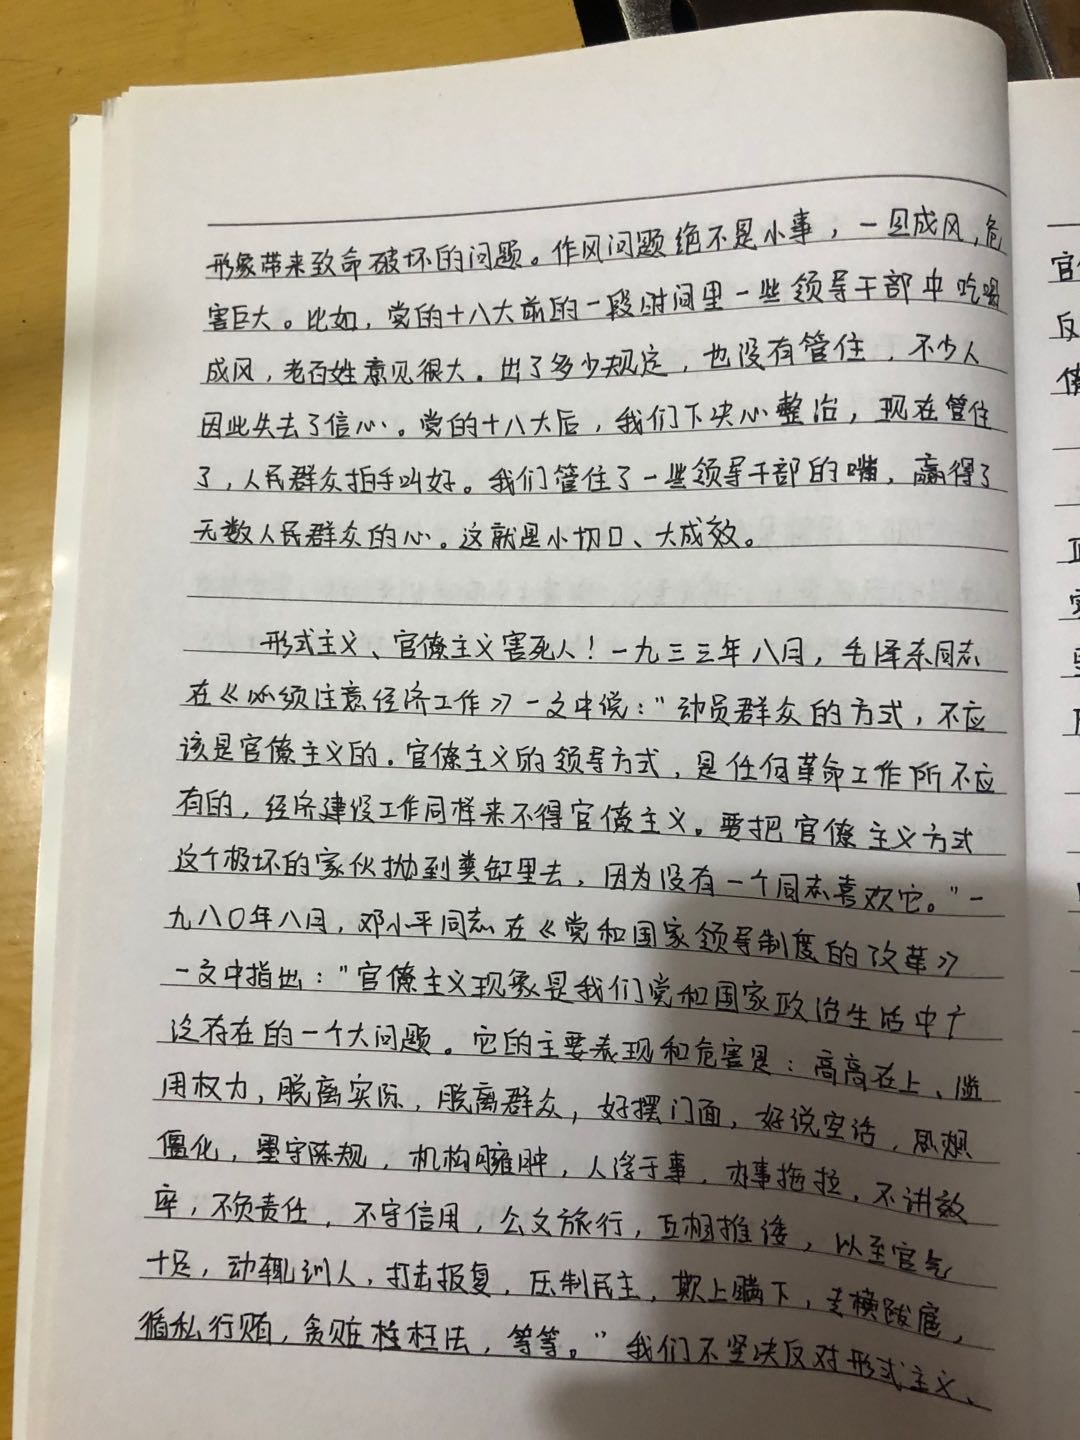 形象带来致命破坏的问题。作风问题绝不是小事，一旦成风，危
害巨大。比如，党的十八大前的一段时间里一些领导干部中吃喝
成风，老百姓意见很大。出了多少规定，也没有管住，不少人
因此失去了信心。党的十八大后，我们下决心整治，现在管住
了，人民群众拍手叫好。我们管住了一些领导干部的嘴，赢得了
无数人民群众的心。这就是小切口、大成效。
形式主义、官僚主义害死人！一九三三年八月，毛泽东同志
在《必须注意经济工作》一文中说："动员群众的方式，不应
该是官僚主义的。官僚主义的领导方式，是任何革命工作所不应
有的，经济建设工作同样来不得官僚主义。要把官僚主义方式
这个极坏的家伙抛到粪缸里去，因为没有一个同志喜欢它。"一
九八〇年八月，邓小平同志在《党和国家领导制度的改革》
一文中指出："官僚主义现象是我们党和国家政治生活中广
泛存在的一个大问题。它的主要表现和危害是：高高在上、滥
用权力，脱离实际，脱离群众，好摆门面，好说空话，思想
僵化，墨守陈规，机构臃肿，人浮于事，办事拖拉，不讲效
率，不负责任，不守信用，公文旅行，互相推诿，以至官气
十足，动辄训人，打击报复，压制民主，欺上瞒下，专横跋扈，
循私行贿，贪赃枉法，等等。"我们不坚决反对形式主义、
官
反